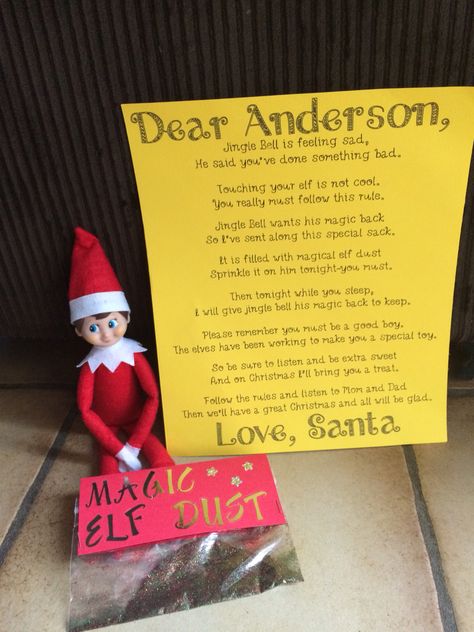 Dear Anderson,
Jingle Bell is feeling sad,
He said you've done something bad.
Touching your elf is not cool.
You really must follow this rule.
Jingle Bell wants his magic back
So I've sent along this special sack.
It is filled with magical elf dust
Sprinkle it on him tonight-you must.
Then tonight while you sleep,
I will give jingle bell his magic back to keep.
Please remember you must be a good boy.
The elves have been working to make you a special toy.
So be sure to listen and be extra sweet
And on Christmas I'll bring you a treat.
Follow the rules and listen to Mom and Dad
Then we'll have a great Christmas and all will be glad.
Love, Santa
MAGIC
ELF DUST